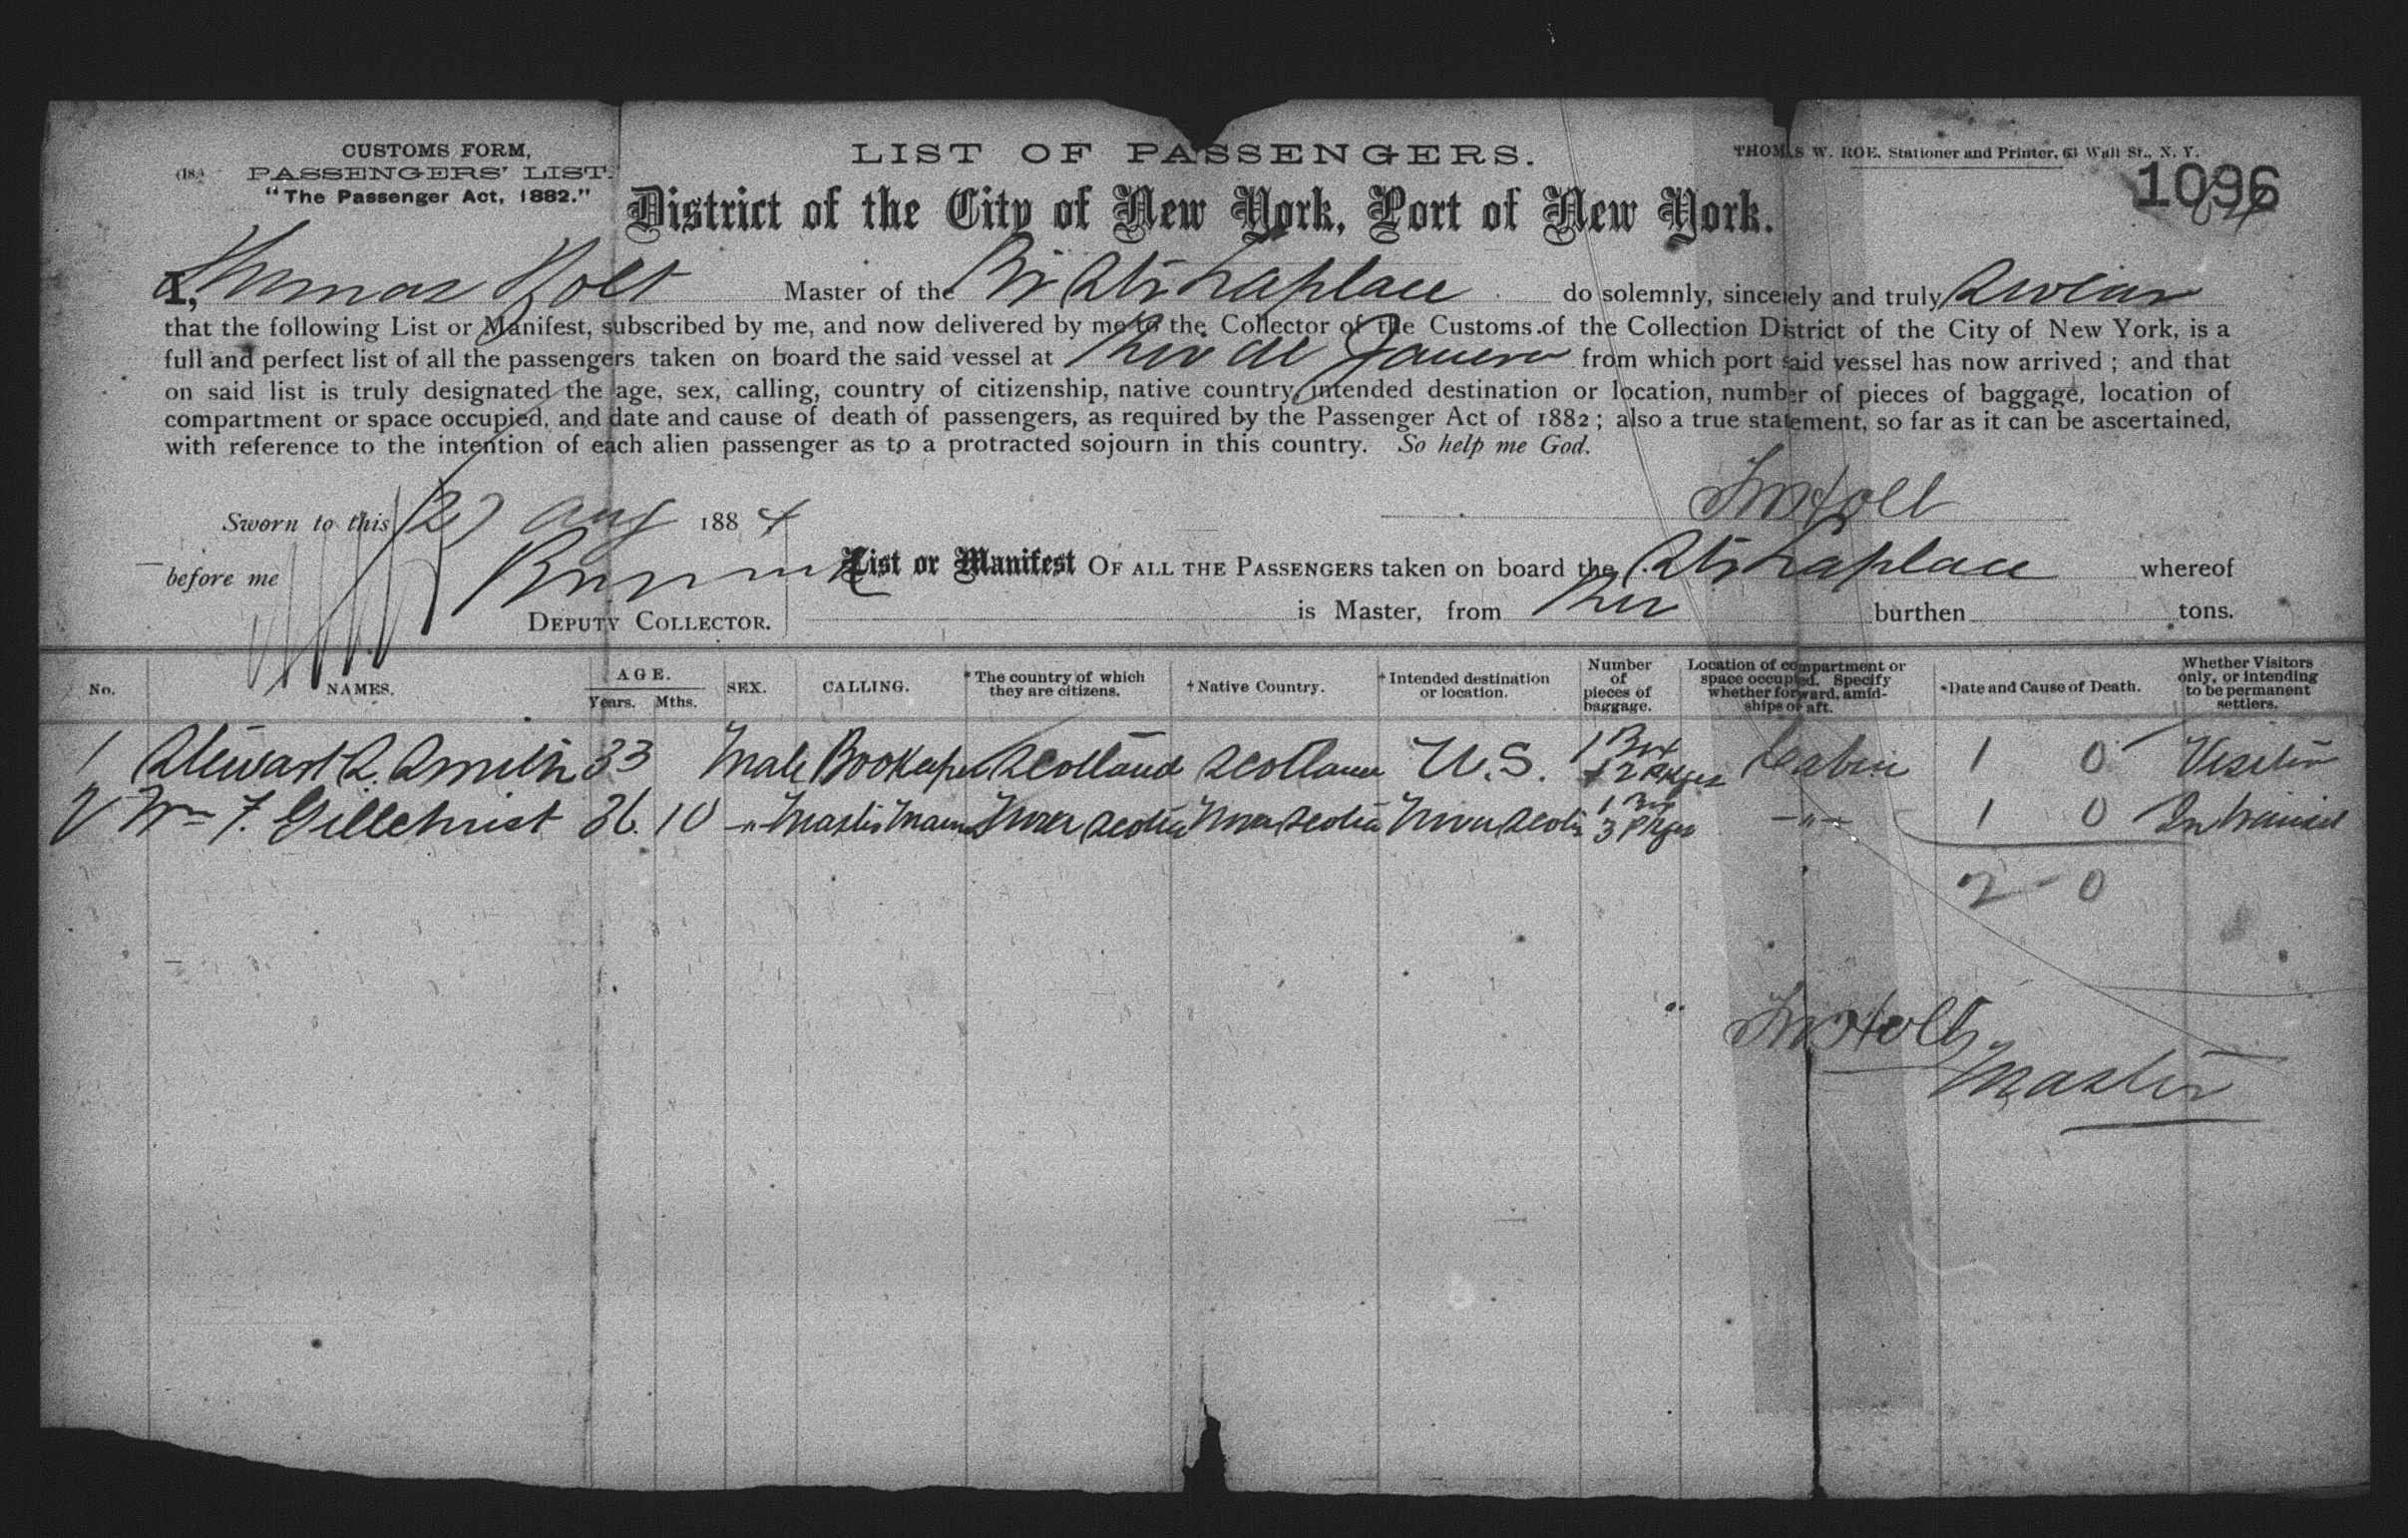 CUSTOMS FORM,
PASSENGERS' LIST.
"The Passenger Act, 1882."
LIST OF PASSENGERS.
THOMAS W. ROE, Stationer and Printer, 61 Wall St., N. Y.
1096
District of the City of New York, Port of New York.
I, Thomas Holt Master of the Br Str Laplace do solemnly, sincerely and truly Swear
that the following List or Manifest, subscribed by me, and now delivered by me to the Collector of the Customs of the Collection District of the City of New York, is a
full and perfect list of all the passengers taken on board the said vessel at Rio de Janeiro from which port said vessel has now arrived ; and that
on said list is truly designated the age, sex, calling, country of citizenship, native country, intended destination or location, number of pieces of baggage, location of
compartment or space occupied, and date and cause of death of passengers, as required by the Passenger Act of 1882 ; also a true statement, so far as it can be ascertained,
with reference to the intention of each alien passenger as to a protracted sojourn in this country. So help me God.
Sworn to this 27 Aug 1884
Thos Holt
before me
DEPUTY COLLECTOR.
List or Manifest OF ALL THE PASSENGERS taken on board the Str Laplace whereof
is Master, from Rio burthen tons.
No. NAMES. AGE. Years. Mths. SEX. CALLING. *The country of which they are citizens. †Native Country. †Intended destination or location. Number of pieces of baggage. Location of compartment or space occupied. Specify whether forward, amidships or aft. *Date and Cause of Death. Whether Visitors only, or intending to be permanent settlers.
1 Stewart S. Smith 33 Male Bookeeper Scotland Scotland U.S. 1 Box + 2 Pkges Cabin 1 0 Visitor
2 Wm F. Gillchrist 36. 10 -"- Master Marin Nova Scotia Nova Scotia Nova Scotia 1 Box 3 Pkges -"- 1 0 In transit
2 - 0
Thos Holt
Master